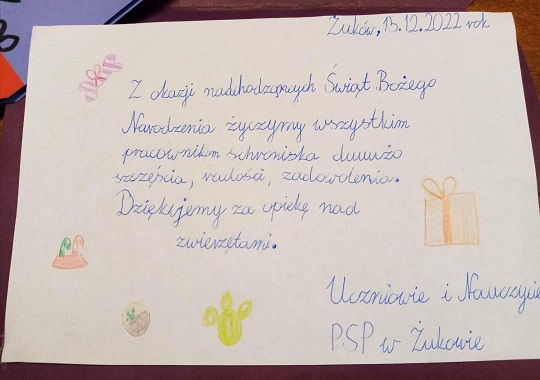 Żuków, 15.12.2022 rok
Z okazji nadchodzących Świąt Bożego
Narodzenia życzymy wszystkim
pracownikom schroniska duuużo
szczęścia, radości, zadowolenia.
Dziękujemy za opiekę nad
zwierzętami.
Uczniowie i Nauczycie
PSP w Żukowie